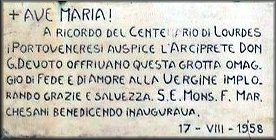 + AVE MARIA!
A RICORDO DEL CENTENARIO DI LOURDES
I PORTOVENERESI AUSPICE L'ARCIPRETE DON
G. DEVOTO OFFRIVANO QUESTA GROTTA OMAG
GIO DI FEDE E DI AMORE ALLA VERGINE IMPLO
RANDO GRAZIE E SALVEZZA. S.E. MONS. F. MAR
CHESANI BENEDICENDO INAUGURAVA.
17 - VIII - 1958